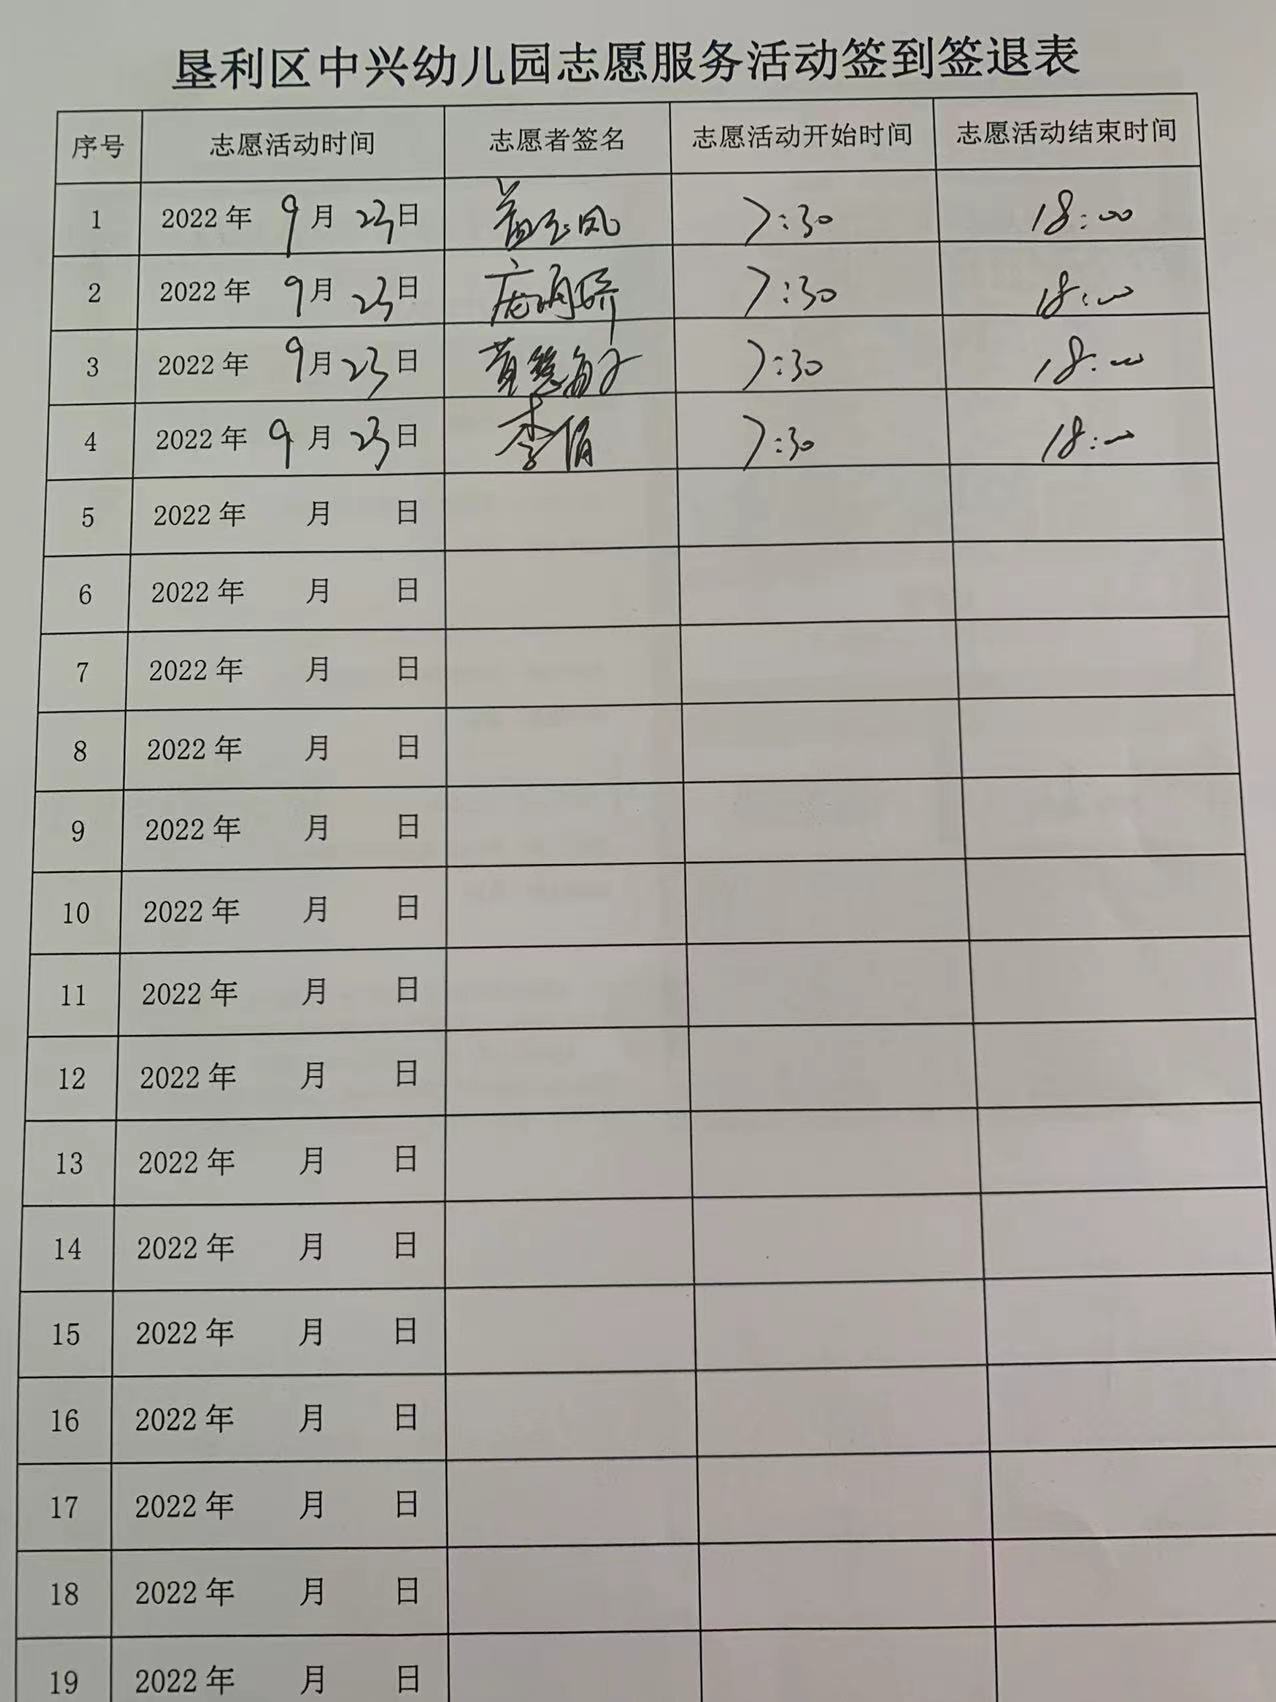 垦利区中兴幼儿园志愿服务活动签到签退表
序号 志愿活动时间 志愿者签名 志愿活动开始时间 志愿活动结束时间
1 2022年 9月 23日 7:30 18:00
2 2022年 9月 23日 7:30 18:00
3 2022年 9月 23日 7:30 18:00
4 2022年 9月 23日 李俏 7:30 18:00
5 2022年 月 日
6 2022年 月 日
7 2022年 月 日
8 2022年 月 日
9 2022年 月 日
10 2022年 月 日
11 2022年 月 日
12 2022年 月 日
13 2022年 月 日
14 2022年 月 日
15 2022年 月 日
16 2022年 月 日
17 2022年 月 日
18 2022年 月 日
19 2022年 月 日